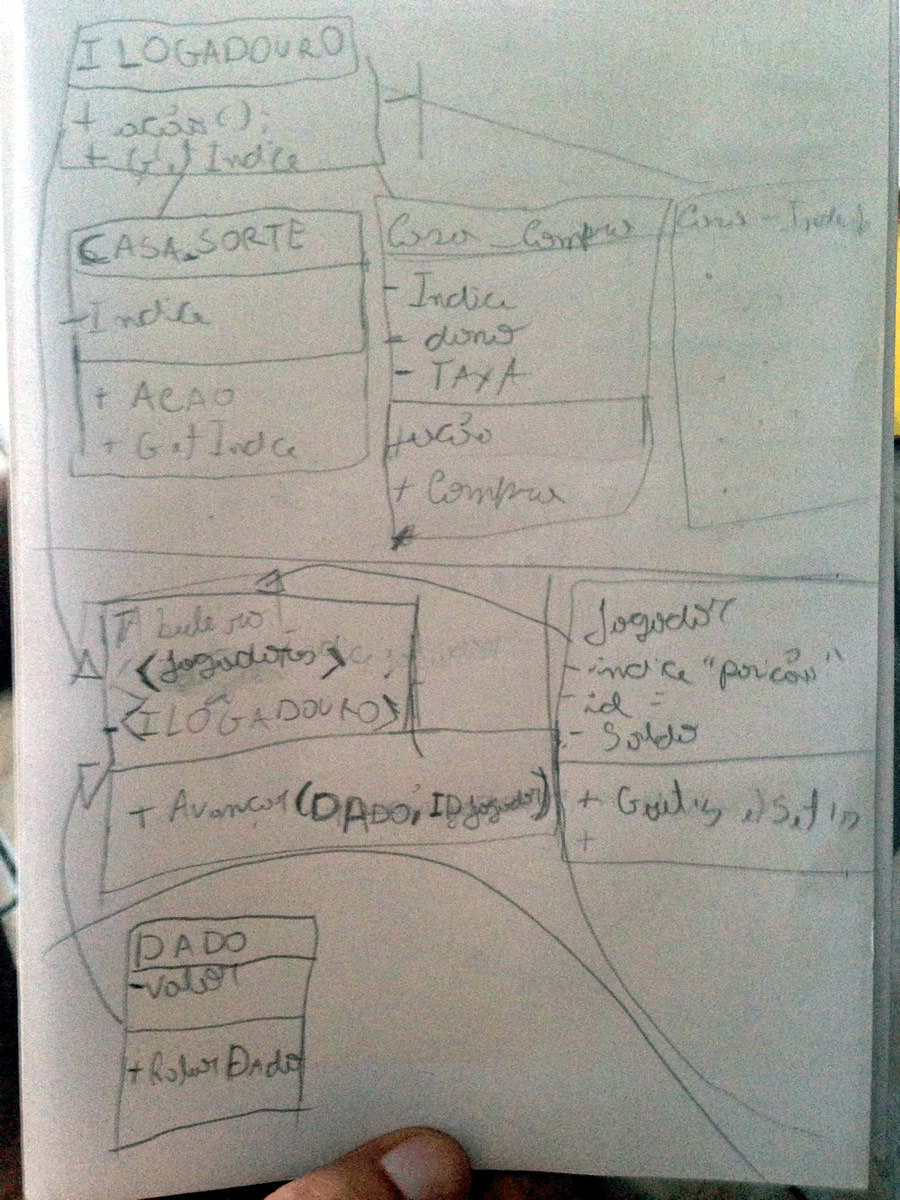 I LOGADOURO
+ ação();
+ Get Indice
CASA_SORTE
- Indice
+ ACAO
+ Get Indce
Casa_Compra
- Indice
- dono
- TAXA
+ ação
+ Comprar
Tabuleiro
<Jogadores>
- <ILOGADOURO>
+ Avancar(DADO, IDJogador)
Jogador
- indice "posição"
- id
- Saldo
+
DADO
- valor
+ Rolar Dado